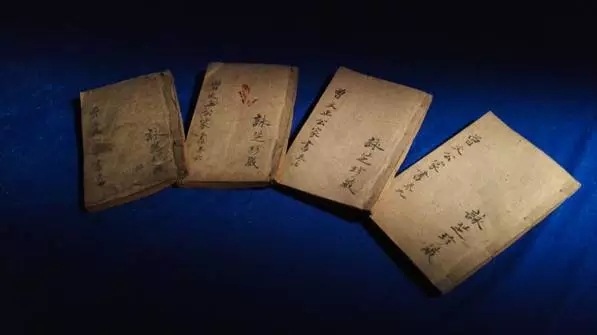 詠芝珍藏
家書
詠芝珍藏
曾文正公家書卷六
詠芝珍藏
曾文正公家書卷七
詠芝珍藏
曾文正公家書卷九